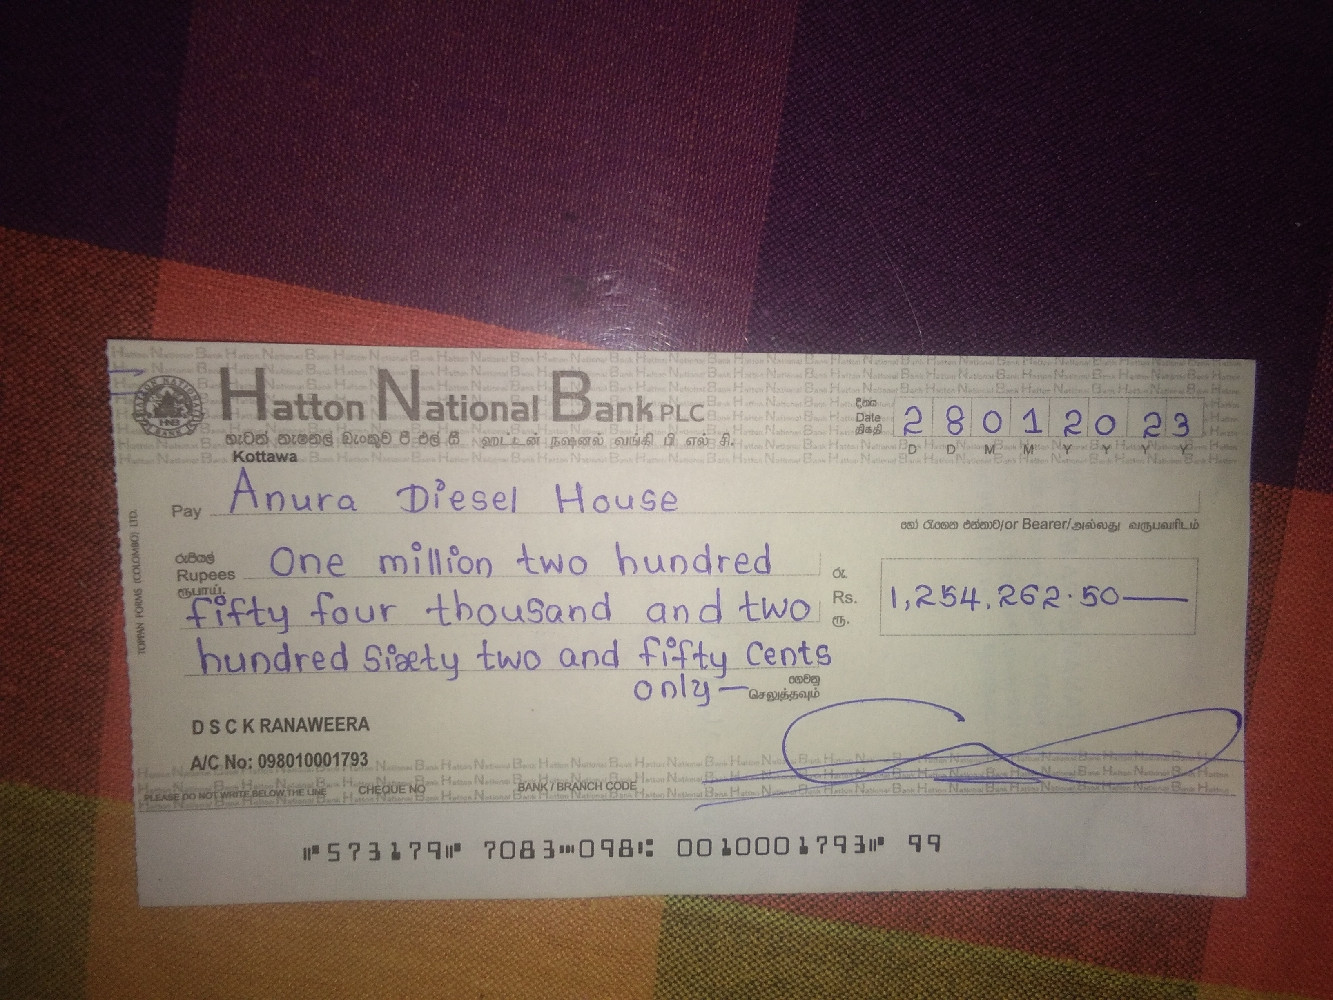 Hatton National Bank PLC
හැටන් නැෂනල් බැංකුව පී එල් සී ஹட்டன் நஷனல் வங்கி பி எல் சி.
Kottawa
දිනය
Date
திகதி
2 8 0 1 2 0 2 3
D D M M Y Y Y Y
Pay Anura Diesel House
හෝ රැගෙන එන්නාට/or Bearer/அல்லது வருபவரிடம்
රුපියල්
Rupees One million two hundred
ரூபாய்
fifty four thousand and two
hundred sixty two and fifty cents
only —
ගෙවනු
செலுத்தவும்
රු.
Rs. 1,254,262.50—
ரூ.
TOPPAN FORMS (COLOMBO) LTD.
D S C K RANAWEERA
A/C No: 098010001793
PLEASE DO NOT WRITE BELOW THE LINE CHEQUE NO BANK / BRANCH CODE
⑈573179⑈ 7083⑉098⑆ 0010001793⑈ 99